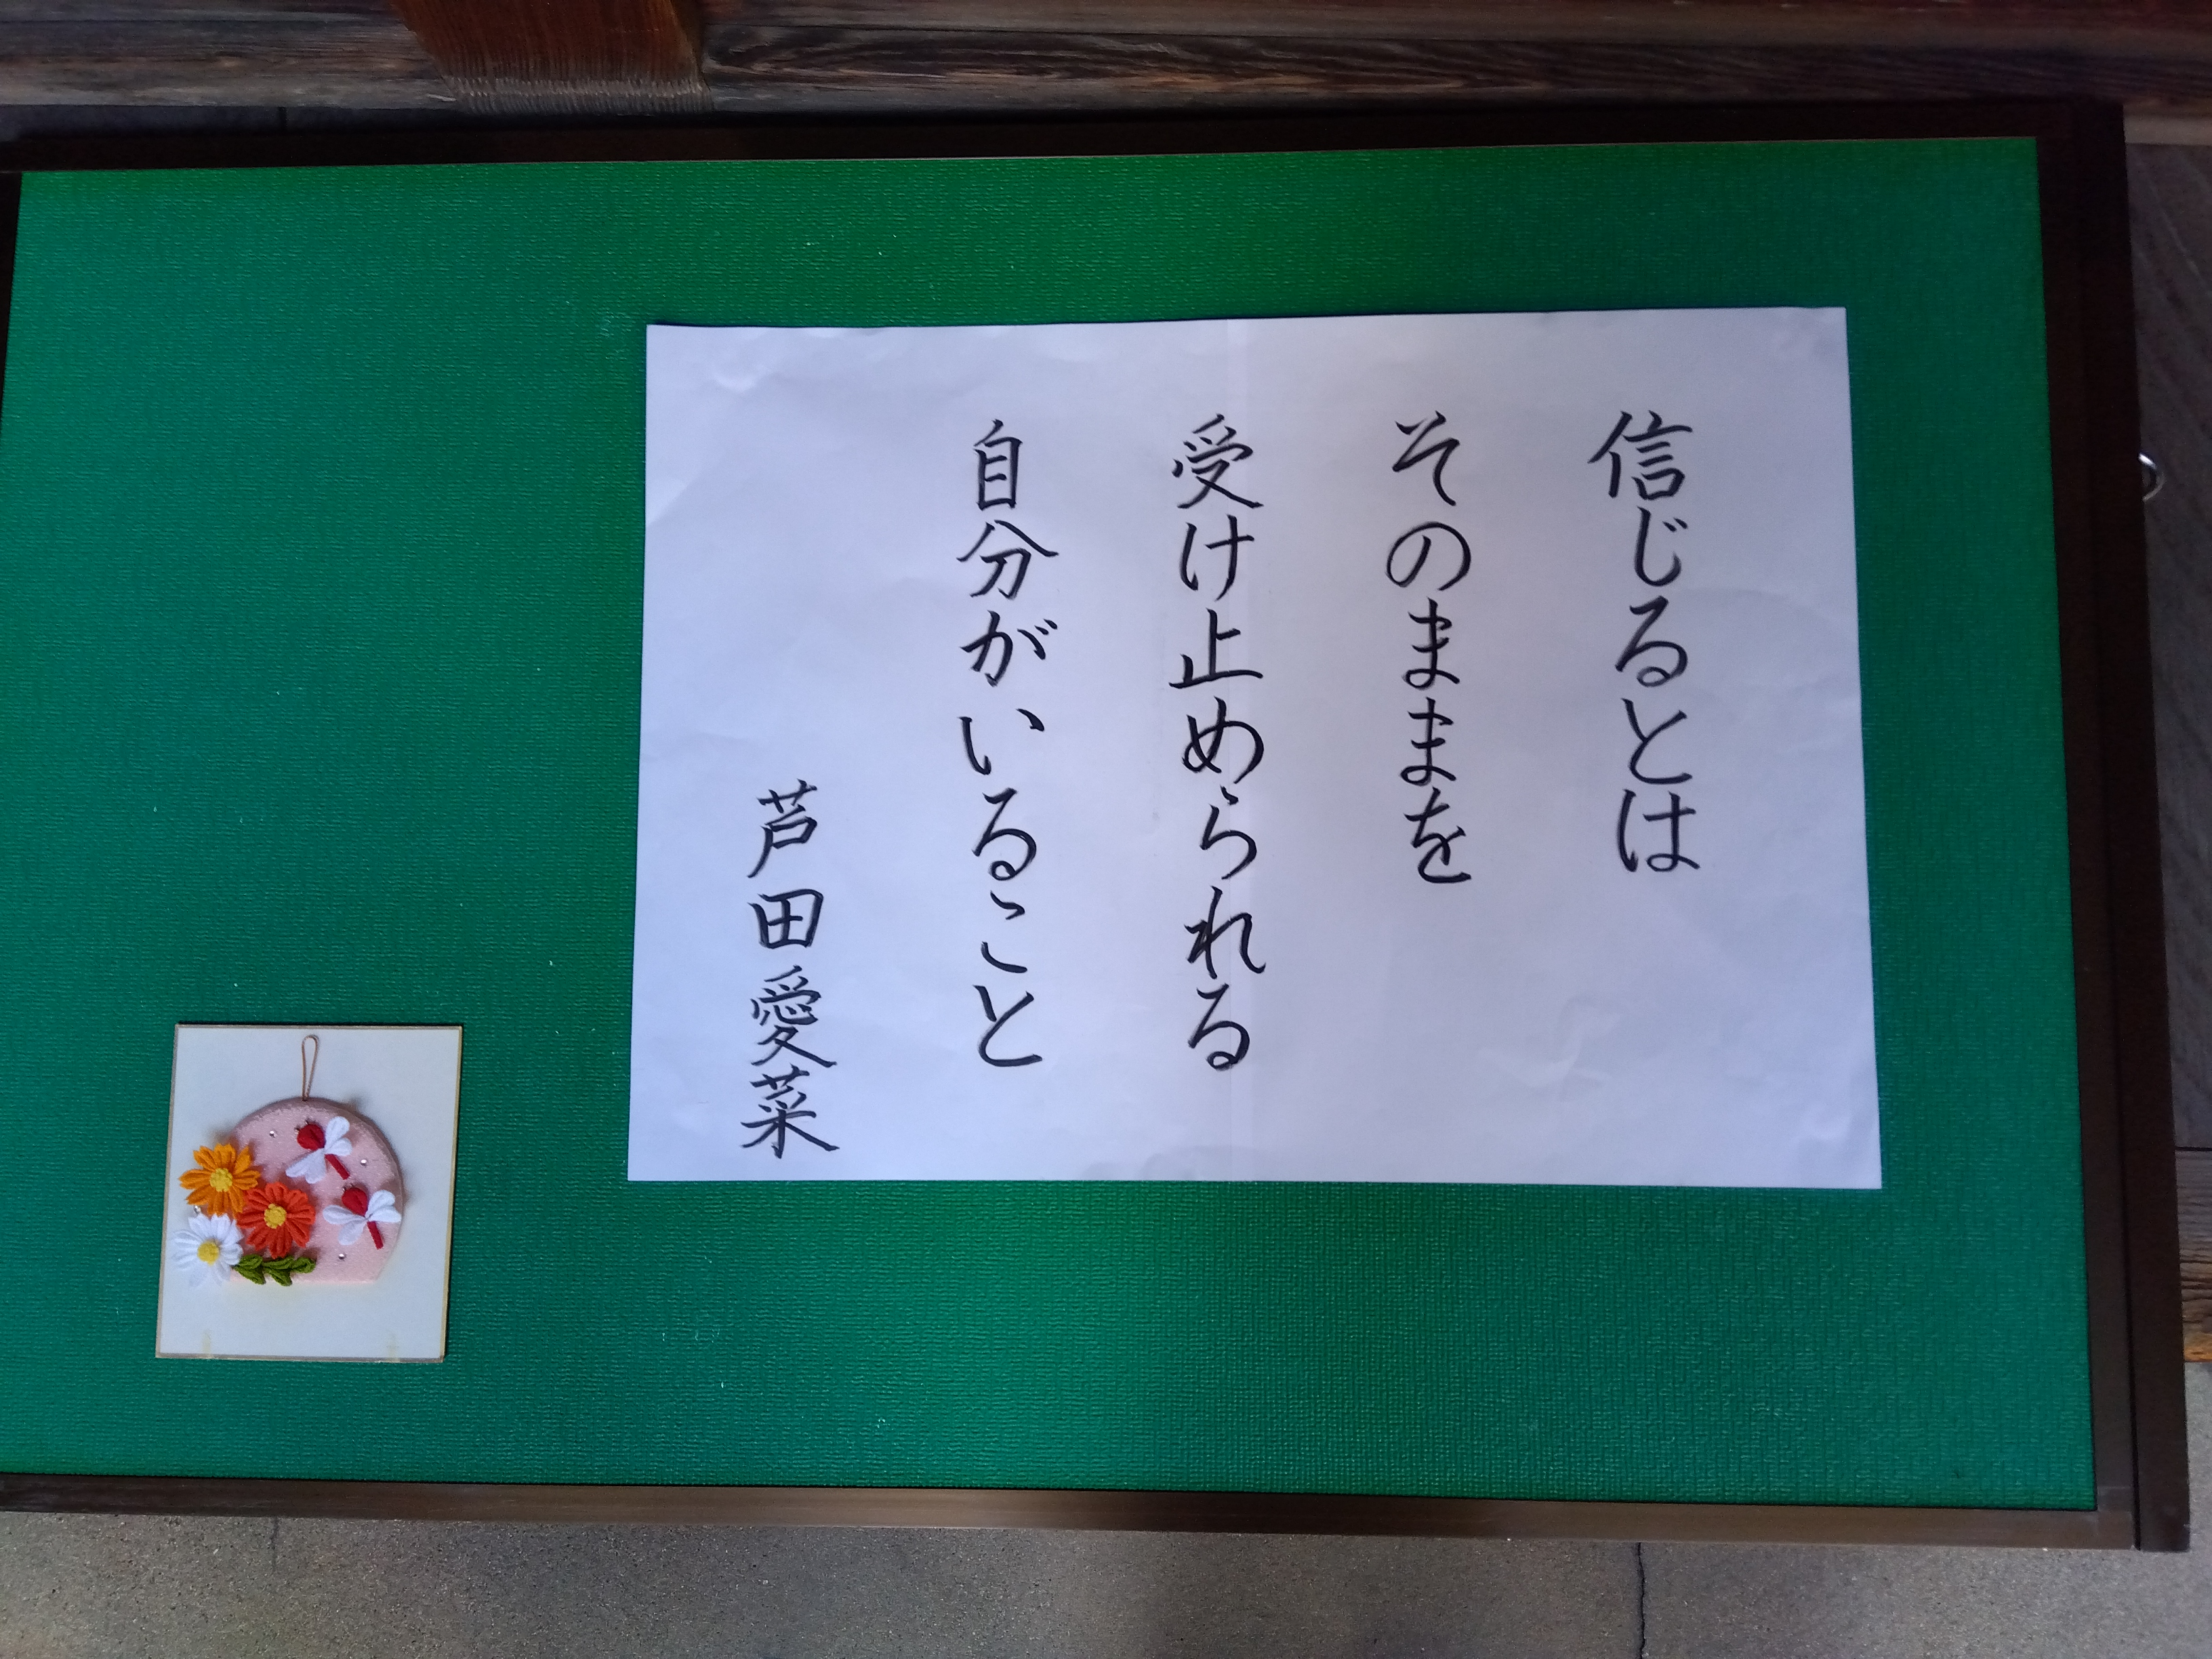 信じるとは
そのままを
受け止められる
自分がいること
芦田愛菜